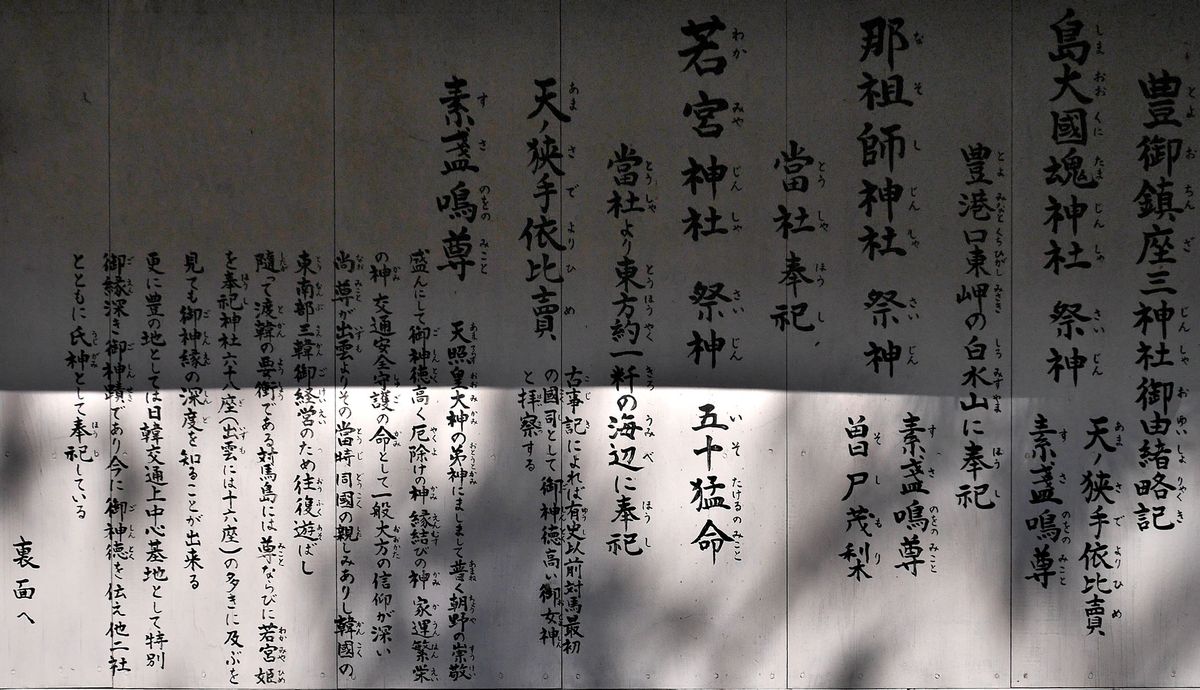 豊御鎮座三神社御由緒略記
島大國魂神社 祭神
天ノ狭手依比賣
素盞鳴尊
豊港口東岬の白水山に奉祀
那祖師神社 祭神
素盞鳴尊
曽尸茂梨
當社奉祀
若宮神社 祭神 五十猛命
當社より東方約一粁の海辺に奉祀
天ノ狭手依比賣
古事記によれば有史以前対馬最初
の國司として御神徳高い御女神
と拝察する
素盞鳴尊
天照皇大神の弟神にましまして普く朝野の崇敬
盛んにして御神徳高く厄除けの神 縁結びの神 家運繁栄
の神 交通安全守護の命として一般大方の信仰が深い
尚尊が出雲よりその当時同國の親しみありし韓國の
東南部三韓御経営のため往復遊ばし
随って渡韓の要衝である対馬島には尊ならびに若宮姫
を奉祀神社六十八座(出雲には十六座)の多きに及ぶを
見ても御神縁の深度を知ることが出来る
更に豊の地としては日韓交通上中心基地として特別
御縁深き御神蹟であり今に御神徳を伝え他二社
とともに氏神として奉祀している
裏面へ